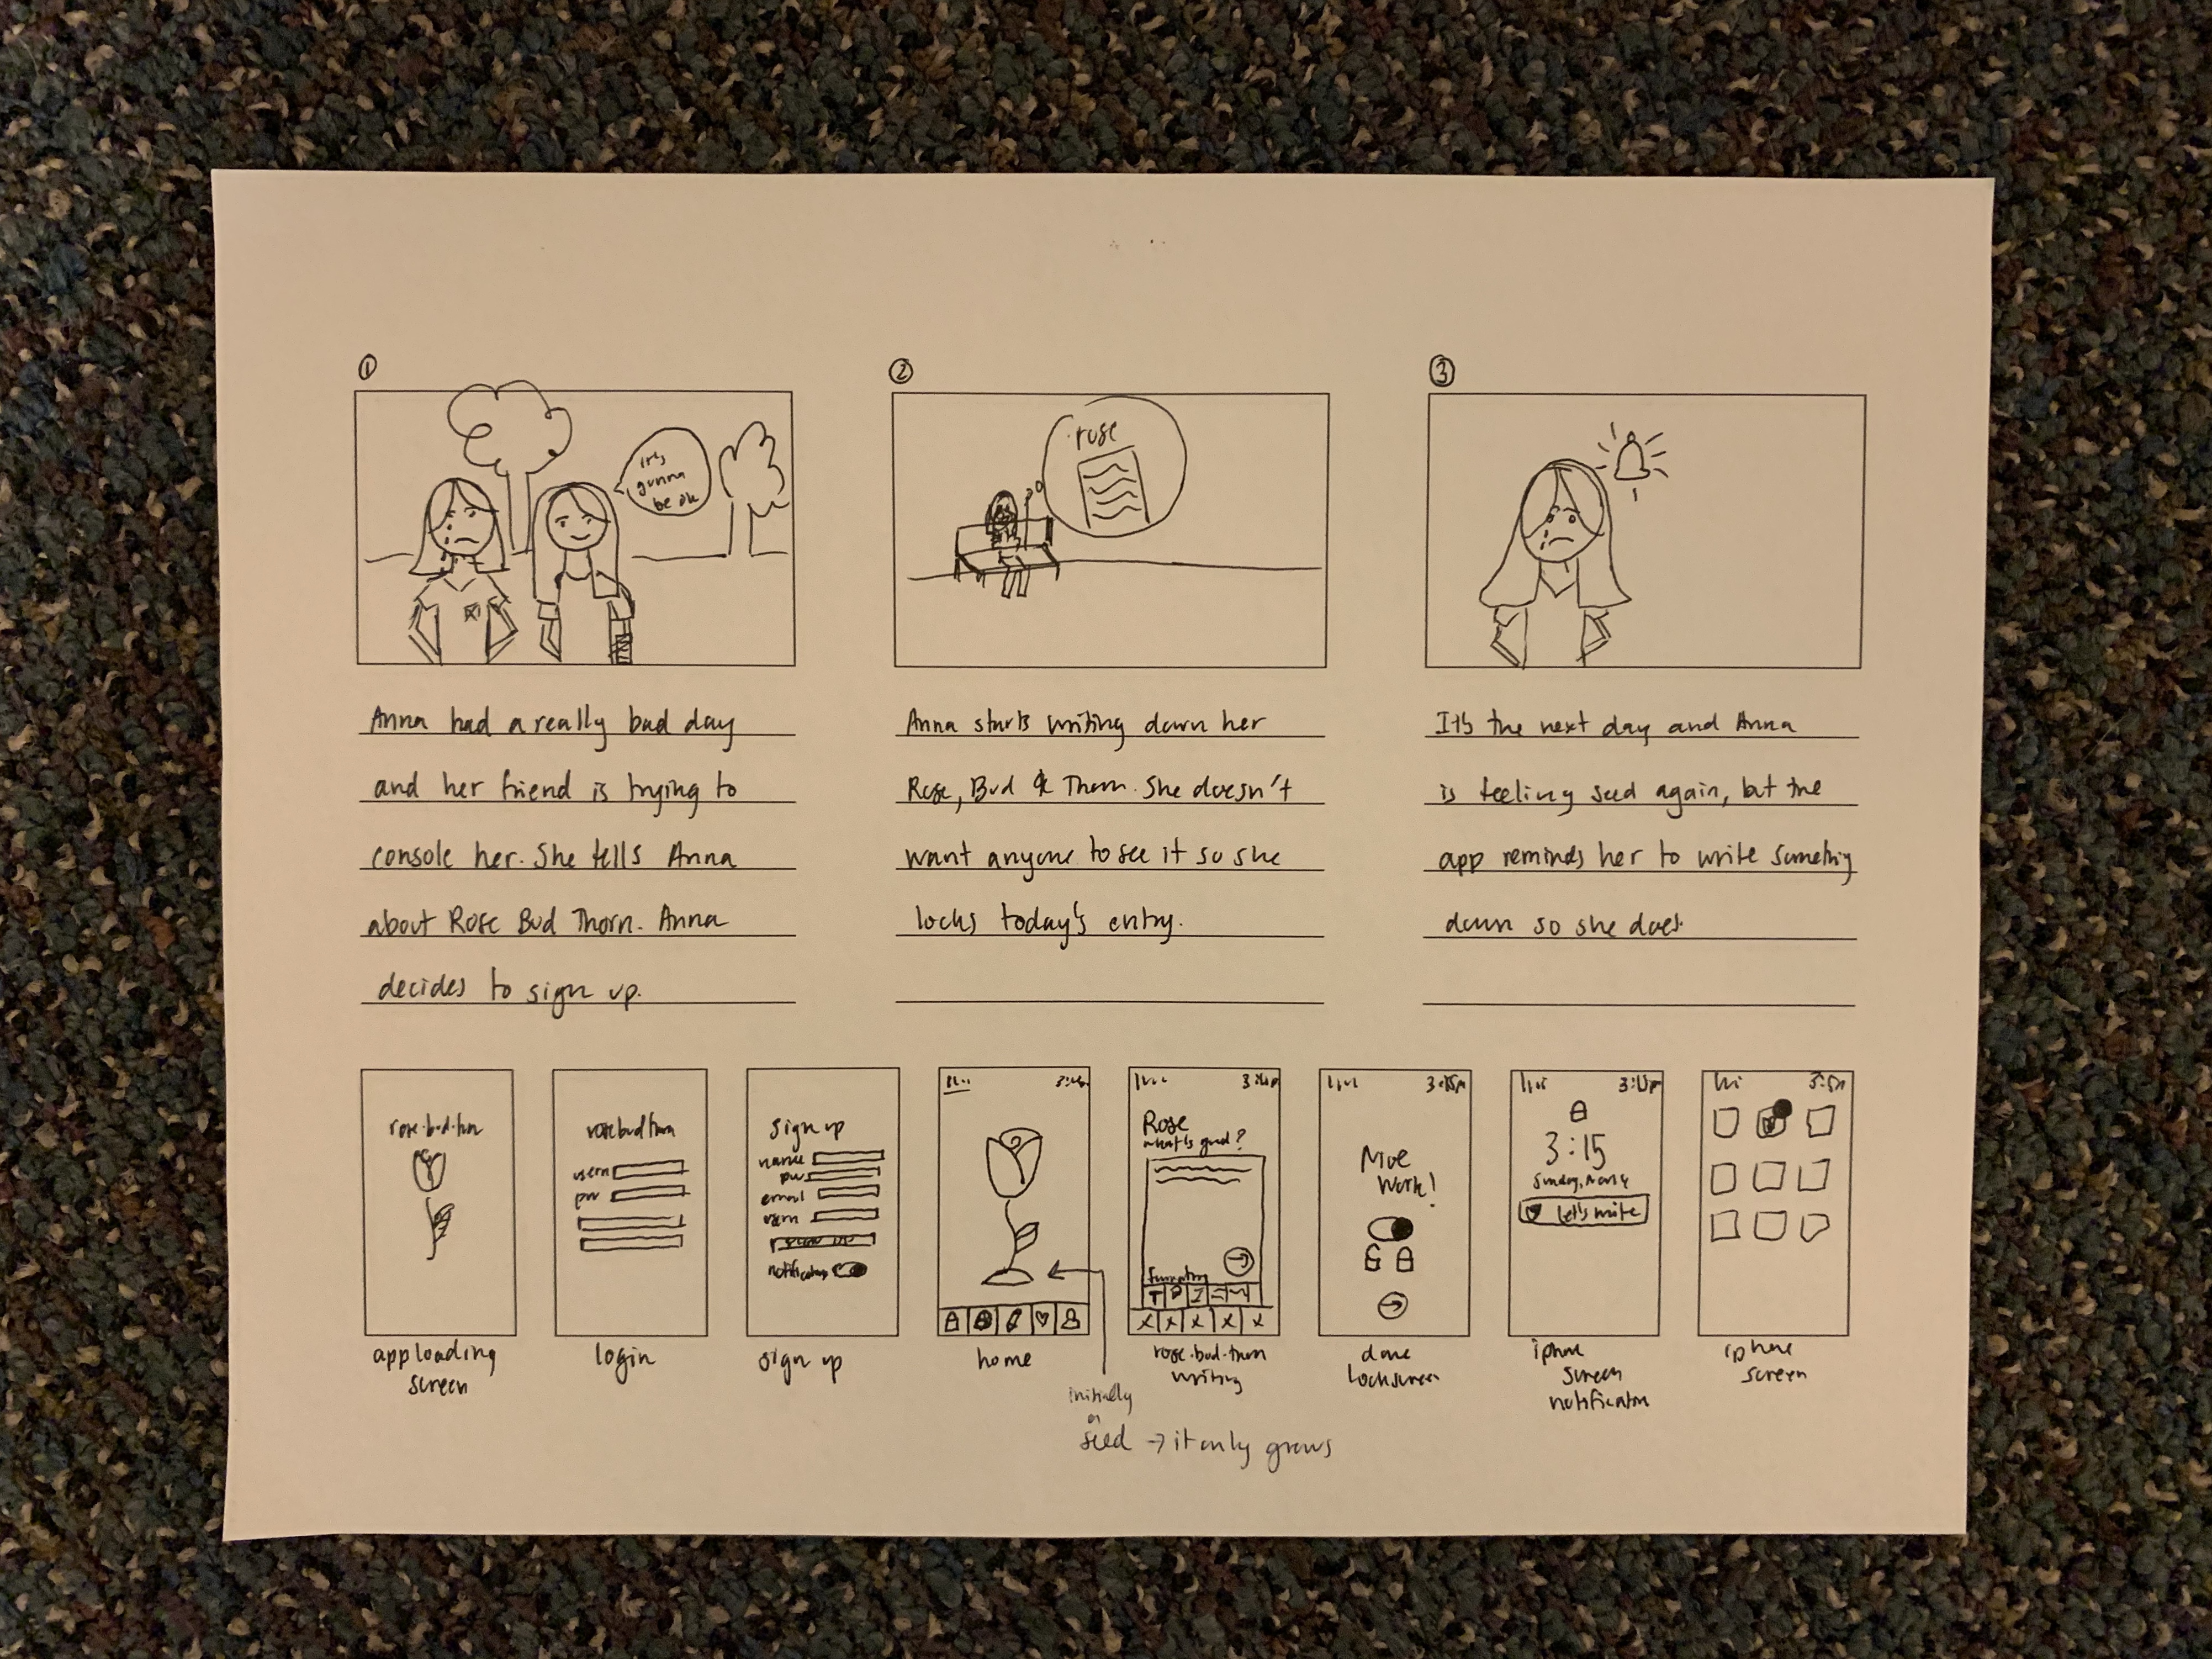 ①
it's
gunna
be ok
Anna had a really bad day
and her friend is trying to
console her. She tells Anna
about Rose Bud Thorn. Anna
decides to sign up.
②
rose
Anna starts writing down her
Rose, Bud & Thorn. She doesn't
want anyone to see it so she
locks today's entry.
③
It's the next day and Anna
is feeling sad again, but the
app reminds her to write something
down so she does.
rose·bud·thorn
app loading
screen
rosebudthorn
usern
pw
login
sign up
name
pw
email
usern
notifications
sign up
home
initially
a
seed → it only grows
Rose
what's good?
formatting
rose·bud·thorn
writing
3:15p
Nice
work!
done
lockscreen
3:15p
3:15
Sunday,
let's write
iphone
screen
notification
iphone
screen